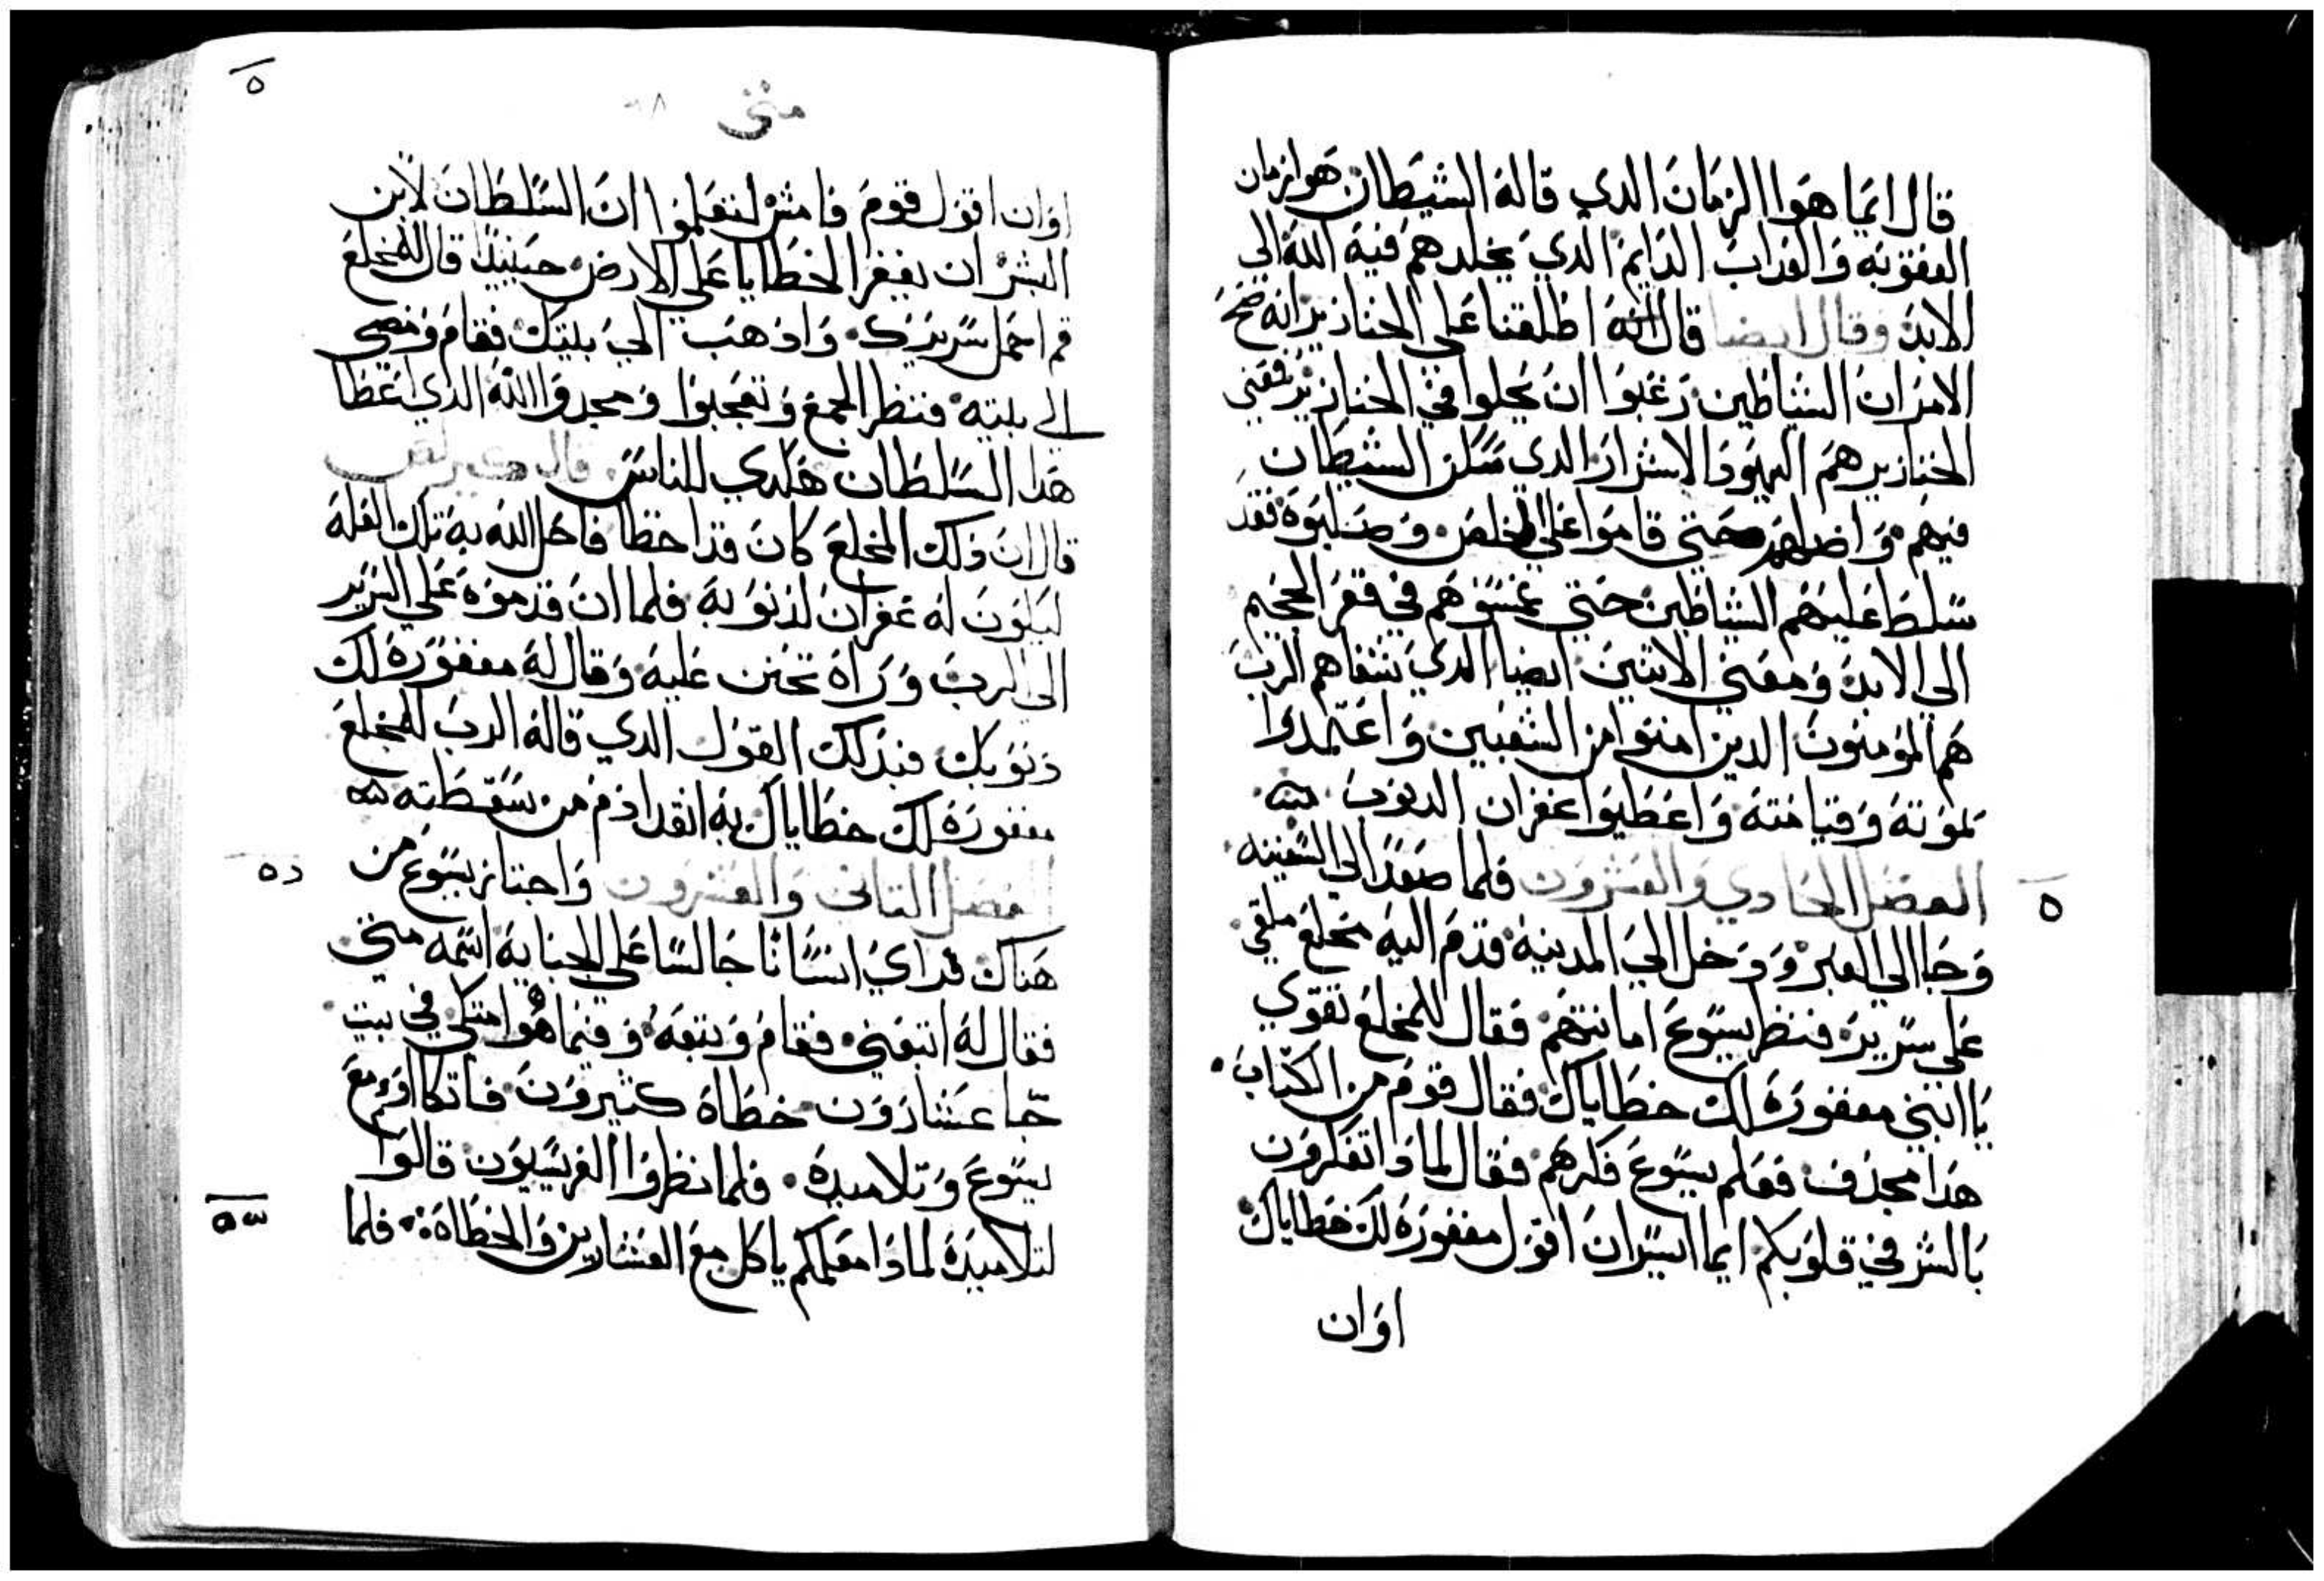 قال انما هوا الزمان الدي قاله الشيطان هوا زمان
العقوبه والعداب الدايم الدي يخلدهم فيه الله الي
الابد وقال ايضا قال انه اطلقنا علي الخنازير انه صح
الامر ان الشياطين رغبوا ان يحلوا في الخنازير فعني
الخنازير هم اليهود الاشرار الدي سكن الشيطان
فيهم واضلهم حتي قاموا علي المخلص وصلبوه فقد
سلط عليهم الشياطين حتي غمسوهم في قعر الجحيم
الي الابد ومعني الاتنين ايضا الدي شفاهم الرب
هم المومنون الدين امنوا من الشعبين واعتمدوا
بموته وقيامته واعطيوا غفران الدنوب
الفصل الحادي والعشرون فلما صعد الي السفينه
٥
وجا الي العبر ودخل الي المدينه قدم اليه مخلع ملقي
علي سرير فنظر يسوع امانتهم فقال للمخلع تقوي
يا ابني مغفوره لك خطاياك فقال قوم من الكتاب
هدا مجدف فعلم يسوع فكرهم فقال لمادا تفكرون
بالشر في قلوبكم ايما ايسر ان اقول مغفوره لك خطاياك
اوان
٥
متي
اوان اقول قوم فامش لتعلموا ان السلطان لابن
البشر ان يغفر الخطايا علي الارض حينيد قال للمخلع
قم احمل سريرك وادهب الي بيتك فقام ومضي
الي بيته فنظر الجمع وتعجبوا ومجدوا الله الدي اعطا
هدا السلطان هكدي للناس قال كيرلص
قال ان دلك المخلع كان قد اخطا فاحل الله به تلك العله
ليكون له غفران لدنوبه فلما ان قدموه علي السرير
الي الرب وراه تحنن عليه وقال له مغفوره لك
دنوبك فبدلك القول الدي قاله الرب للمخلع
مغفوره لك خطاياك به انقد ادم من سقطته
الفصل التاني والعشرون واجتاز يسوع من
٥٢
هناك فراي انسانا جالسا علي الجبايه اسمه متي
فقال له اتبعني فقام وتبعه وفيما هوا متكي في بيت
جا عشارون خطاه كتيرون فاتكاوا مع
يسوع وتلاميده فلما نظروا الفريسيون قالوا
لتلاميده لمادا معلمكم ياكل مع العشارين والخطاه فلما